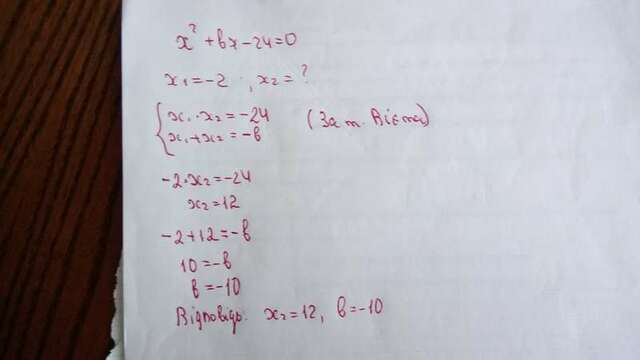 x² + bx - 24 = 0
x₁ = -2 ; x₂ = ?
{ x₁ · x₂ = -24 (За т. Вієта)
x₁ + x₂ = -b
-2 · x₂ = -24
x₂ = 12
-2 + 12 = -b
10 = -b
b = -10
Відповідь: x₂ = 12, b = -10